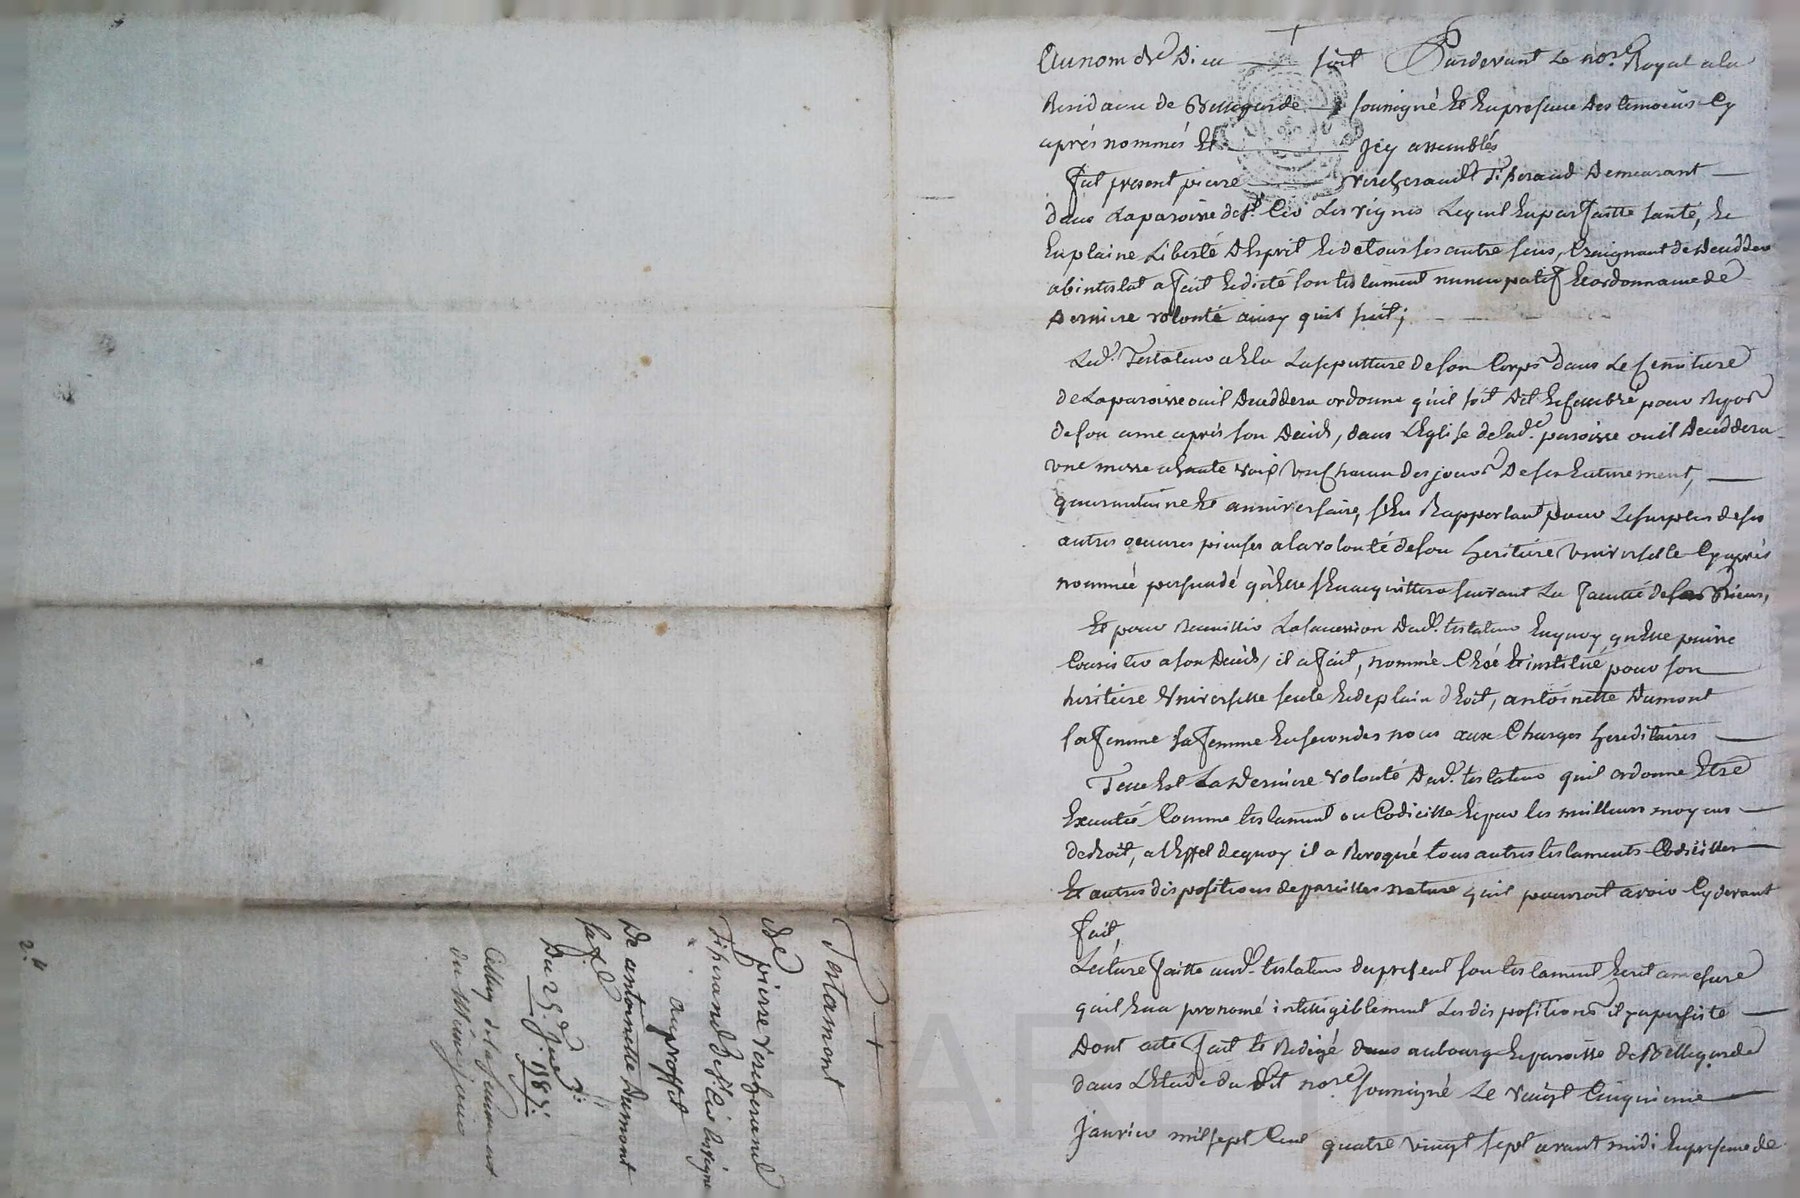 Au nom de Dieu soit Pardevant Le nore Royal a la
Residance de Bellegarde soussigné Et En presence Des temoins Cy
aprés nommés Et Icy assemblés
fut present pierre Vercherand Tisserand Demeurant
dans La paroisse de St Cir Les vignes Lequel En parfaitte santé, Et
En plaine Liberté D'Esprit Et de tous ses autre sens, Craignant de Deceder
abintestat a fait Et dicté son testament nuncupatif Et ordonnance de
Derniere volonté ainsy quil suit;
Led. Testateur a Elu La sepulture de son Corps dans Le semitiere
de La paroisse ou il Deceddera ordonne qu'il soit Dit Et Celebré pour Repos
de son ame aprés son Decéds, dans L'Eglise de lade. paroisse ou il Deceddera
une messe a haute voix un chacun des jours De ses Enterrement,
quarantaine Et anniversaire, s'En Rapportant pour Le surplus de ses
autres oeuvres pieuses a la volonté de son heritiere universelle Cy aprés
nommée persuadé qu'Elle s'En acquittera suivant La faculté de ses Biens,
Et pour Recueillir La succession Dud. testateur En quoy qu'Elle puisse
Consister a son Decéds, il a fait, nommé Crée Et institué pour son
heritiere Universelle seule Et de plain droit, antoinette Dumont
sa femme sa femme En secondes noces aux Charges hereditaires
Telle Est La Derniere volonté Dud. testateur quil ordonne Etre
Executée Comme testament ou Codicille Et par les meilleurs moyens
de droit, a L'Effet de quoy il a Revoqué tous autres testaments Codicilles
Et autres dispositions de pareilles nature quil pourroit avoir Cy devant
fait
Lecture faitte aud. testateur du present son testament Ecrit a mesure
quil En a prononcé intelligiblement Les dispositions il y a persisté
Dont acte fait Et Redigé au bourg Et paroisse de Bellegarde
dans L'Etude du dit nore soussigné Le vaingt Cinquieme
Janvier mil sept Cent quatre vingt sept avant midi En presence de
Testament
de pierre Vercherand
Tisserand de St Cir les vignes
au proffit
De antoinette Dumont
sa fe
Du 25. Jer 1787.
du Meme jour